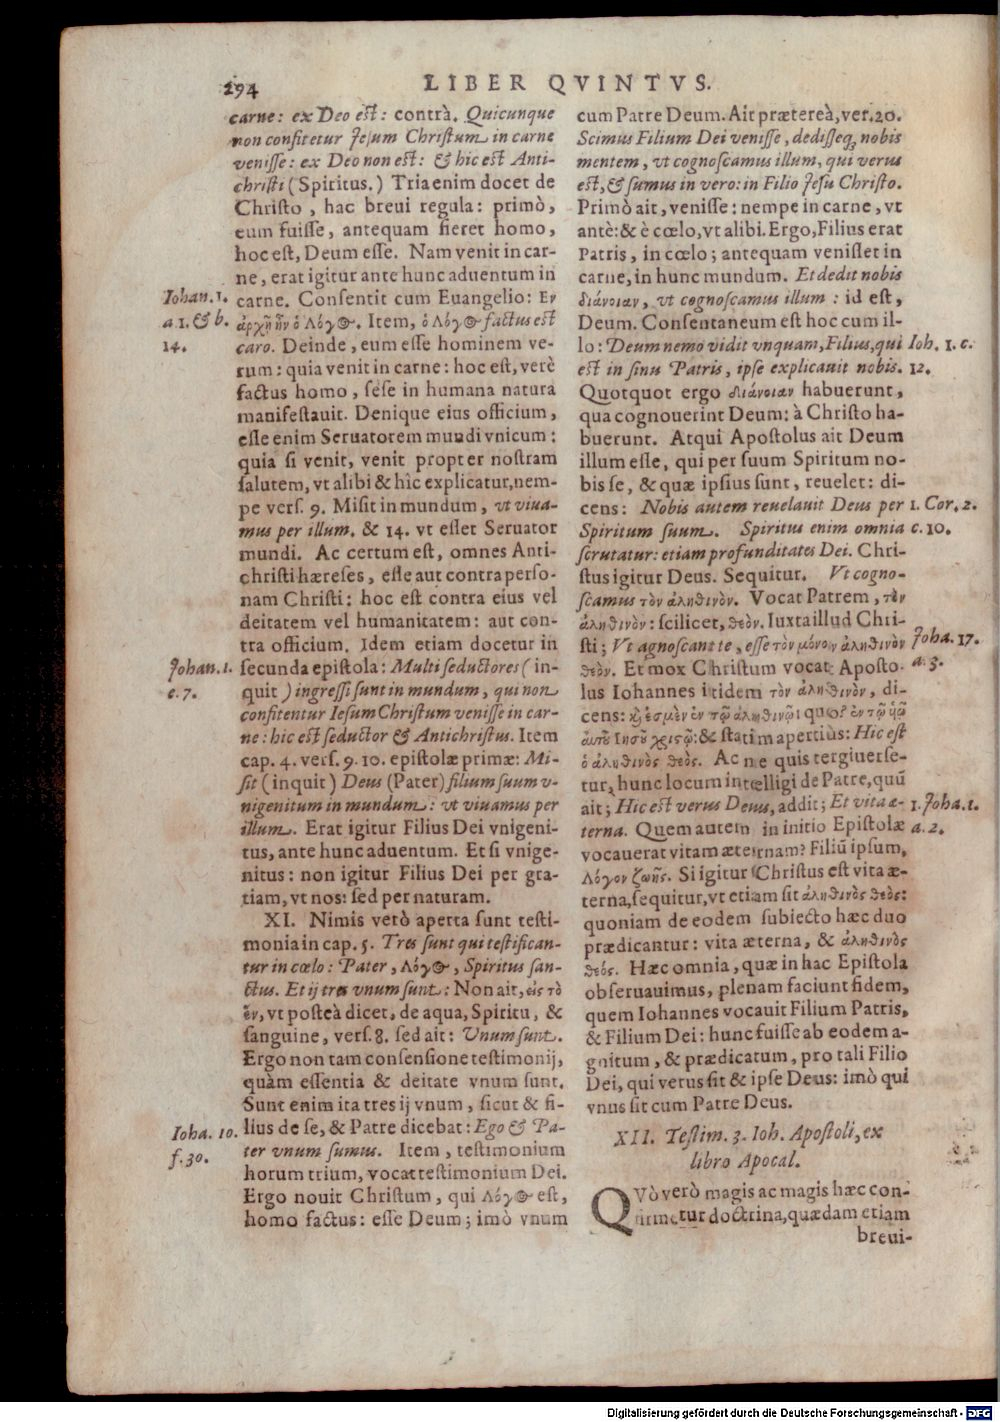 294
LIBER QVINTVS.
carne: ex Deo est: contrà. Quicunque
non confitetur Jesum Christum in carne
venisse: ex Deo non est: & hic est Anti-
christi (Spiritus.) Tria enim docet de
Christo, hac breui regula: primò,
eum fuisse, antequam fieret homo,
hoc est, Deum esse. Nam venit in car-
ne, erat igitur ante hunc aduentum in
carne. Consentit cum Euangelio: Εν
ἀρχῇ ἦν ὁ Λόγος. Item, ὁ Λόγος factus est
caro. Deinde, eum esse hominem ve-
rum: quia venit in carne: hoc est, verè
factus homo, sese in humana natura
manifestauit. Denique eius officium,
esse enim Seruatorem mundi vnicum:
quia si venit, venit propter nostram
salutem, vt alibi & hîc explicatur, nem-
pe vers. 9. Misit in mundum, vt viua-
mus per illum. & 14. vt esset Seruator
mundi. Ac certum est, omnes Anti-
christi hæreses, esse aut contra perso-
nam Christi: hoc est contra eius vel
deitatem vel humanitatem: aut con-
tra officium. Idem etiam docetur in
secunda epistola: Multi seductores (in-
quit) ingressi sunt in mundum, qui non
confitentur Iesum Christum venisse in car-
ne: hic est seductor & Antichristus. Item
cap. 4. vers. 9. 10. epistolæ primæ: Mi-
sit (inquit) Deus (Pater) filium suum v-
nigenitum in mundum: vt viuamus per
illum. Erat igitur Filius Dei vnigeni-
tus, ante hunc aduentum. Et si vnige-
nitus: non igitur Filius Dei per gra-
tiam, vt nos: sed per naturam.
XI. Nimis verò aperta sunt testi-
monia in cap. 5. Tres sunt qui testifican-
tur in cœlo: Pater, Λόγος, Spiritus san-
ctus. Et ij tres vnum sunt: Non ait, εἰς τὸ
ἓν, vt posteà dicet, de aqua, Spiritu, &
sanguine, vers. 8. sed ait: Vnum sunt.
Ergo non tam consensione testimonij,
quàm essentia & deitate vnum sunt.
Sunt enim ita tres ij vnum, sicut & fi-
lius de se, & Patre dicebat: Ego & Pa-
ter vnum sumus. Item, testimonium
horum trium, vocat testimonium Dei.
Ergo nouit Christum, qui Λόγος est,
homo factus: esse Deum; imò vnum
Johan. 1.
a 1. & b.
14.
Johan. 1.
c. 7.
Ioha. 10.
f. 30.
cum Patre Deum. Ait prætereà, ver. 20.
Scimus Filium Dei venisse, dedisseq; nobis
mentem, vt cognoscamus illum, qui verus
est, & sumus in vero: in Filio Jesu Christo.
Primò ait, venisse: nempe in carne, vt
antè: & è cœlo, vt alibi. Ergo, Filius erat
Patris, in cœlo; antequam venisset in
carne, in hunc mundum. Et dedit nobis
διάνοιαν, vt cognoscamus illum: id est,
Deum. Consentaneum est hoc cum il-
lo: Deum nemo vidit vnquam, Filius, qui
est in sinu Patris, ipse explicauit nobis.
Quotquot ergo διάνοιαν habuerunt,
qua cognouerint Deum: à Christo ha-
buerunt. Atqui Apostolus ait Deum
illum esse, qui per suum Spiritum no-
bis se, & quæ ipsius sunt, reuelet: di-
cens: Nobis autem reuelauit Deus per
Spiritum suum. Spiritus enim omnia
scrutatur: etiam profunditates Dei. Chri-
stus igitur Deus. Sequitur. Vt cogno-
scamus τὸν ἀληθινὸν. Vocat Patrem, τὸν
ἀληθινὸν: scilicet, θεὸν. Iuxta illud Chri-
sti; Vt agnoscant te, esse τὸν μόνον ἀληθινὸν
θεὸν. Et mox Christum vocat Aposto-
lus Iohannes itidem τὸν ἀληθινὸν, di-
cens: καὶ ἐσμὲν ἐν τῷ ἀληθινῷ: quo? ἐν τῷ ὑῷ
αὐτοῦ Ιησοῦ χριστῷ: & statim apertiùs: Hic est
ὁ ἀληθινὸς θεὸς. Ac ne quis tergiuerse-
tur, hunc locum intelligi de Patre, quū
ait; Hic est verus Deus, addit; Et vita æ-
terna. Quem autem in initio Epistolæ
vocauerat vitam æternam? Filiū ipsum,
Λόγον ζωῆς. Si igitur Christus est vita æ-
terna, sequitur, vt etiam sit ἀληθινὸς θεὸς:
quoniam de eodem subiecto hæc duo
prædicantur: vita æterna, & ἀληθινὸς
θεός. Hæc omnia, quæ in hac Epistola
obseruauimus, plenam faciunt fidem,
quem Iohannes vocauit Filium Patris,
& Filium Dei: hunc fuisse ab eodem a-
gnitum, & prædicatum, pro tali Filio
Dei, qui verus sit & ipse Deus: imò qui
vnus sit cum Patre Deus.
XII. Testim. 3. Ioh. Apostoli, ex
libro Apocal.
QVò verò magis ac magis hæc con-
firmetur doctrina, quædam etiam
breui-
Ioh. 1. c.
12.
1. Cor. 2.
c. 10.
Joha. 17.
a. 3.
1. Joha. 1.
a. 2.
Digitalisierung gefördert durch die Deutsche Forschungsgemeinschaft - DFG